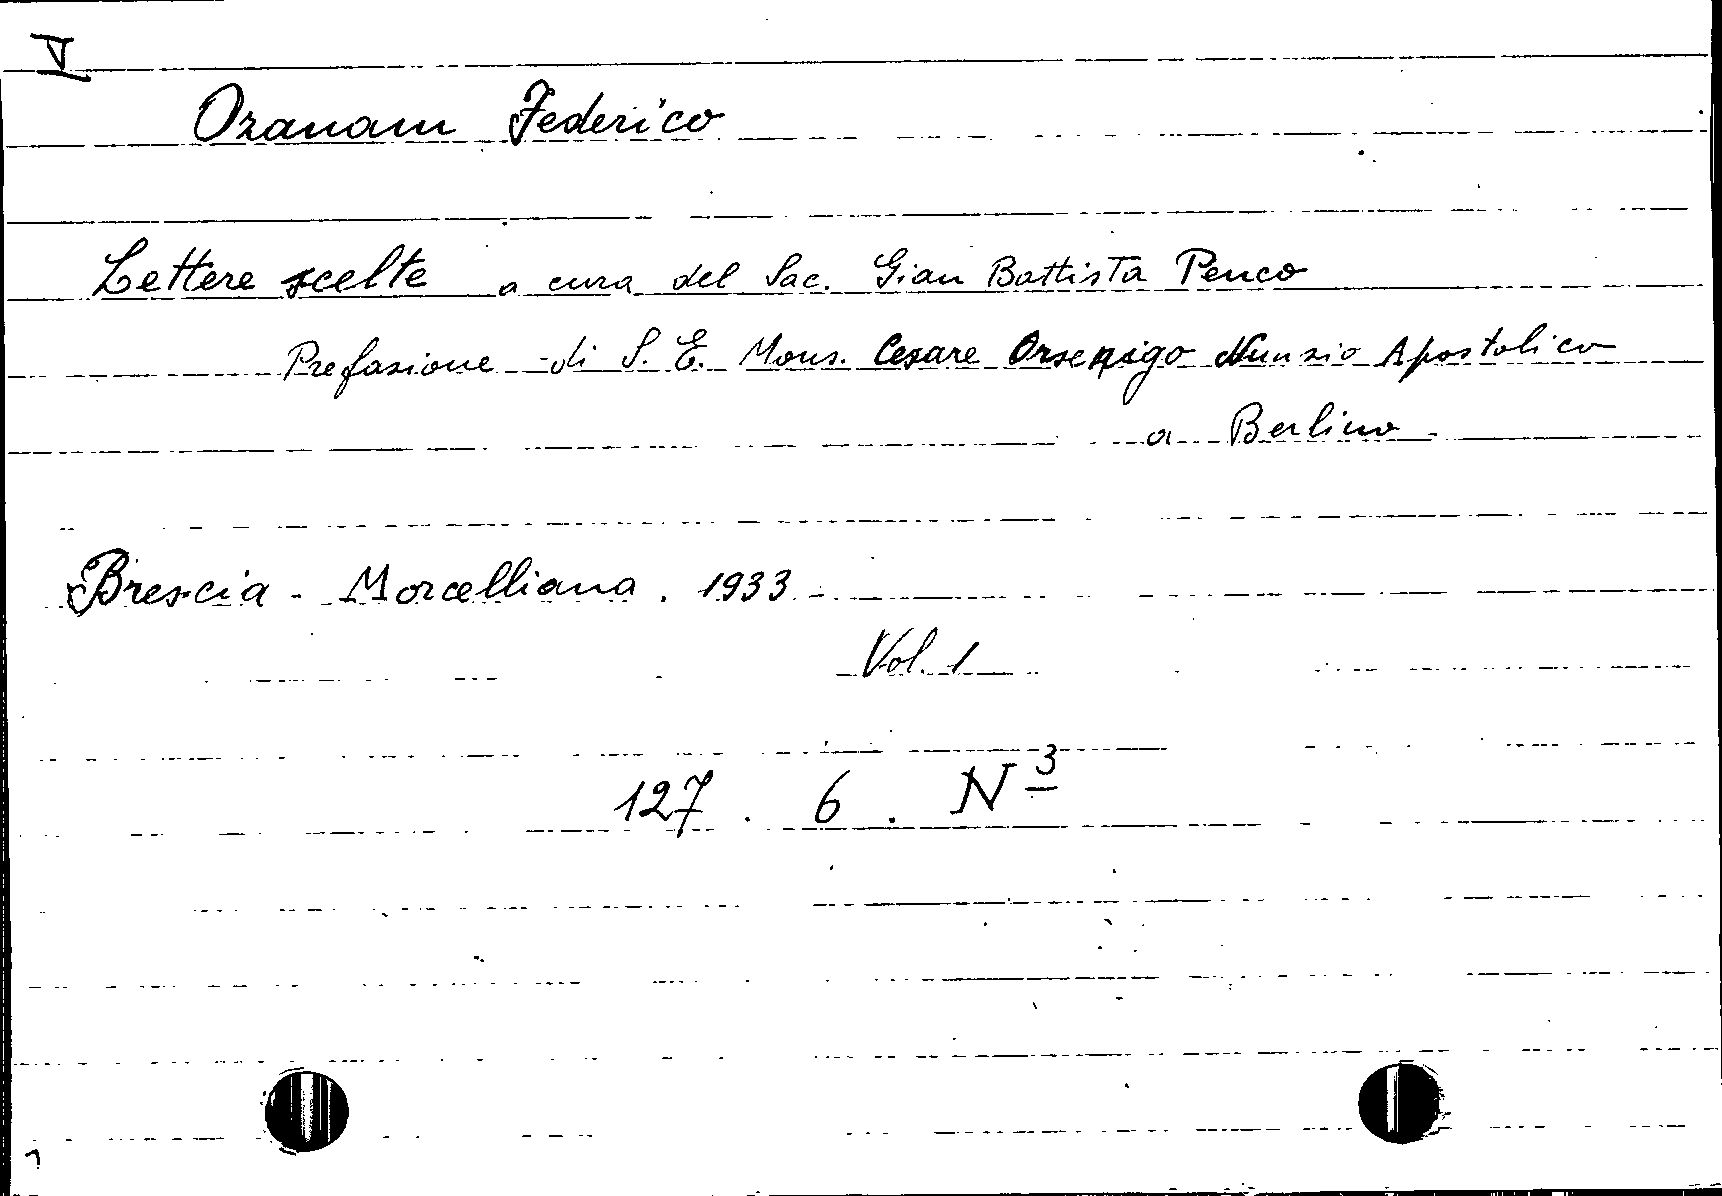 V
Ozanam Federico
Lettere scelte a cura del Sac. Gian Battista Penco
Prefazione di S. E. Mons. Cesare Orsenigo Nunzio Apostolico
a Berlino
Brescia - Morcelliana . 1933
Vol. 1
127 . 6 . N 3